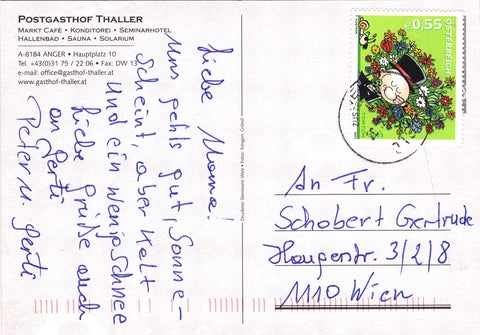 POSTGASTHOF THALLER
MARKT CAFÉ • KONDITOREI • SEMINARHOTEL
HALLENBAD • SAUNA • SOLARIUM
A-8184 ANGER • Hauptplatz 10
Tel. +43(0)31 75 / 22 06 • Fax: DW 13
e-mail: office@gasthof-thaller.at
www.gasthof-thaller.at
Liebe Mama!
Uns gehts gut, Sonne-
scheint, aber Kalt
Und ein wenig Schnee
liebe Grüße auch
an Gerti
Peter u. Gerti
€ 0,55
ÖSTERREICH
An Fr.
Schobert Gertrude
Haugerstr. 3/2/8
1110 Wien